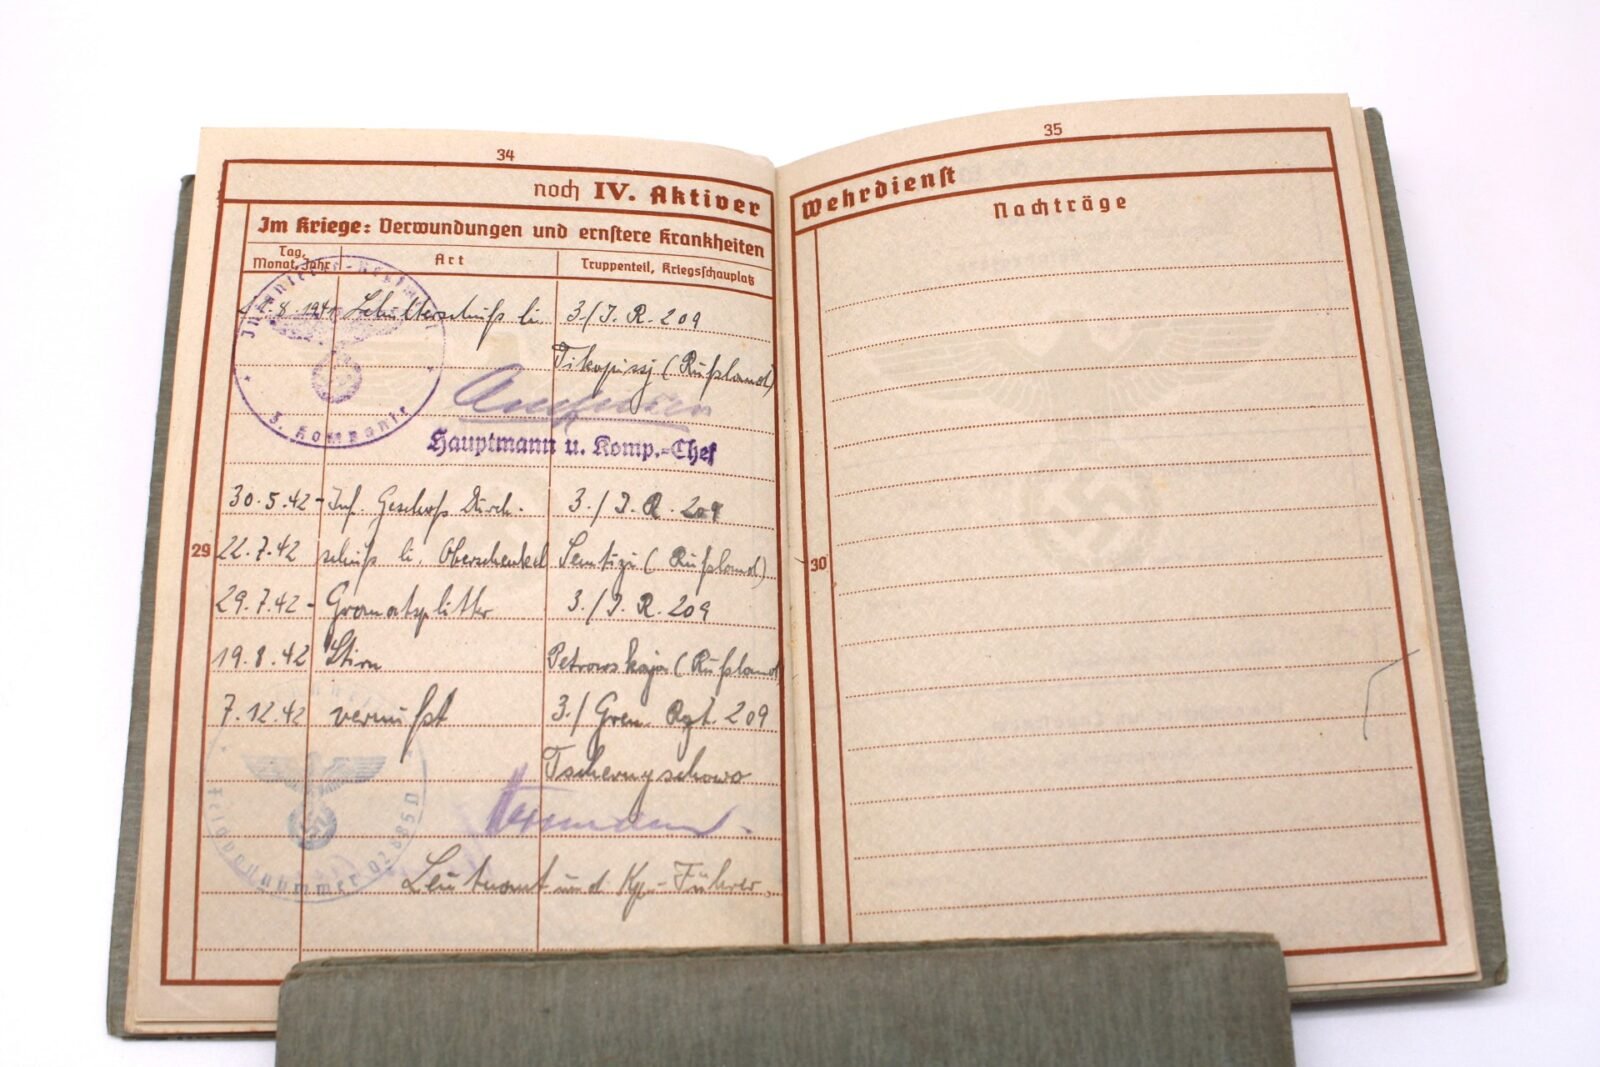 34
noch IV. Aktiver
Im Kriege: Verwundungen und ernstere Krankheiten
Tag, Monat, Jahr
Art
Truppenteil, Kriegsschauplatz
8. 1941 Schulterschuß li. 3./I. R. 209
(Rußland)
Infanterie-Regiment
3. Kompanie
Hauptmann u. Komp.-Chef
30.5.42 - Inf. Geschoß Durch- 3./I. R. 209
29
22.7.42 schuß li. Oberschenkel (Rußland)
29.7.42 - Granatsplitter 3./I. R. 209
19.8.42 Stirn Petrowskaja (Rußland
7.12.42 vermißt 3./Gren. Rgt. 209
Tschernyschowo
Feldpostnummer 02885 D
Leutnant und Kp.-Führer.
35
Wehrdienst
Nachträge
30